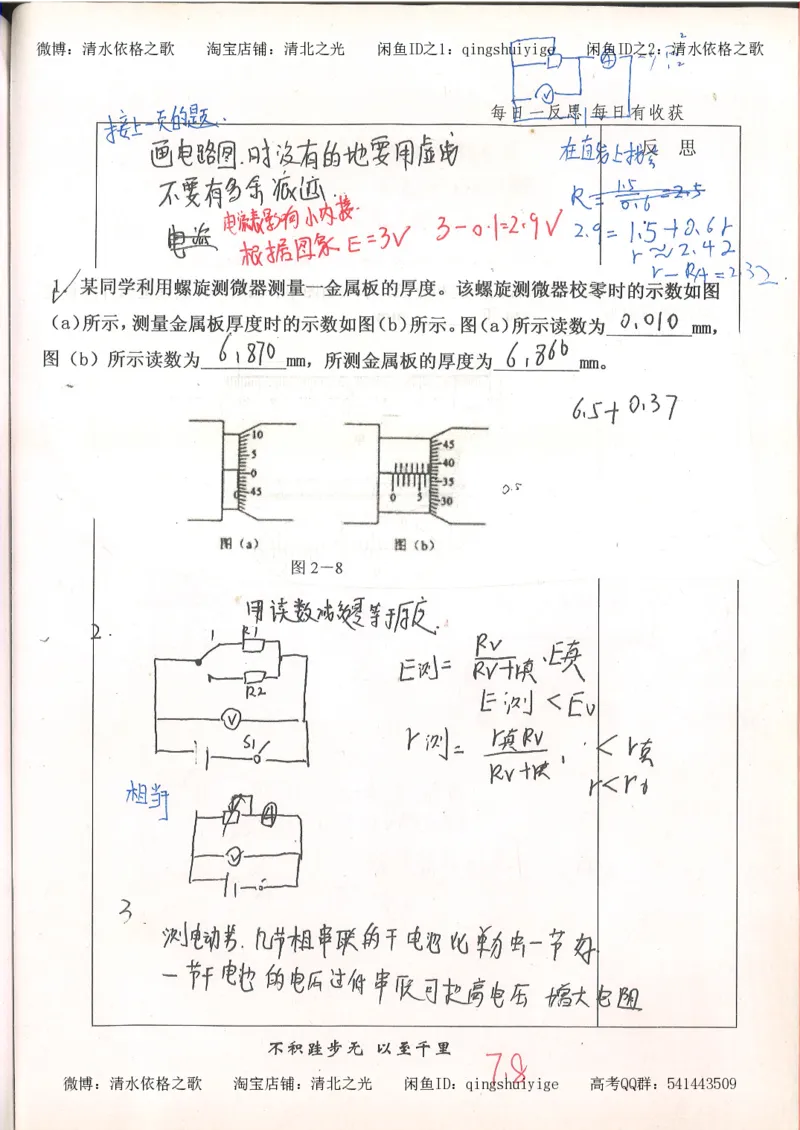 微博：清水依格之歌 淘宝店铺：清北之光 闲鱼ID之1：qingshuiyige 闲鱼ID之2：清水依格之歌
每日一反思 每日有收获
接上一页的题.
反 思
画电路图.时没有的地要用虚线
不要有多余痕迹.
在直线上找
R = 1.5/0.6 = 2.5
电流表影响小内接.
电流
根据图象 E=3V 3-0.1=2.9V
2.9 = 1.5+0.6r
r≈2.42
r-RA=2.32.
1. 某同学利用螺旋测微器测量一金属板的厚度。该螺旋测微器校零时的示数如图
（a）所示，测量金属板厚度时的示数如图（b）所示。图（a）所示读数为 0.010 mm，
图（b）所示读数为 6.870 mm，所测金属板的厚度为 6.860 mm。
6.5+0.37
10
5
0
45
0
45
40
35
30
0 5
0.5
图（a） 图（b）
图 2－8
用读数减校零等于厚度.
2.
1 R1
R2
V
S1
E测= RV/(RV+r真) ·E真
E测 < E
r测= r真RV/(RV+r真) , < r真
r<r
相当于
A
V
3.
测电动势.几节相串联的干电池比单独一节好
一节干电池的电压过低串联可提高电压 增大电阻
不积跬步无 以至千里
7.8
微博：清水依格之歌 淘宝店铺：清北之光 闲鱼ID：qingshuiyige 高考QQ群：541443509